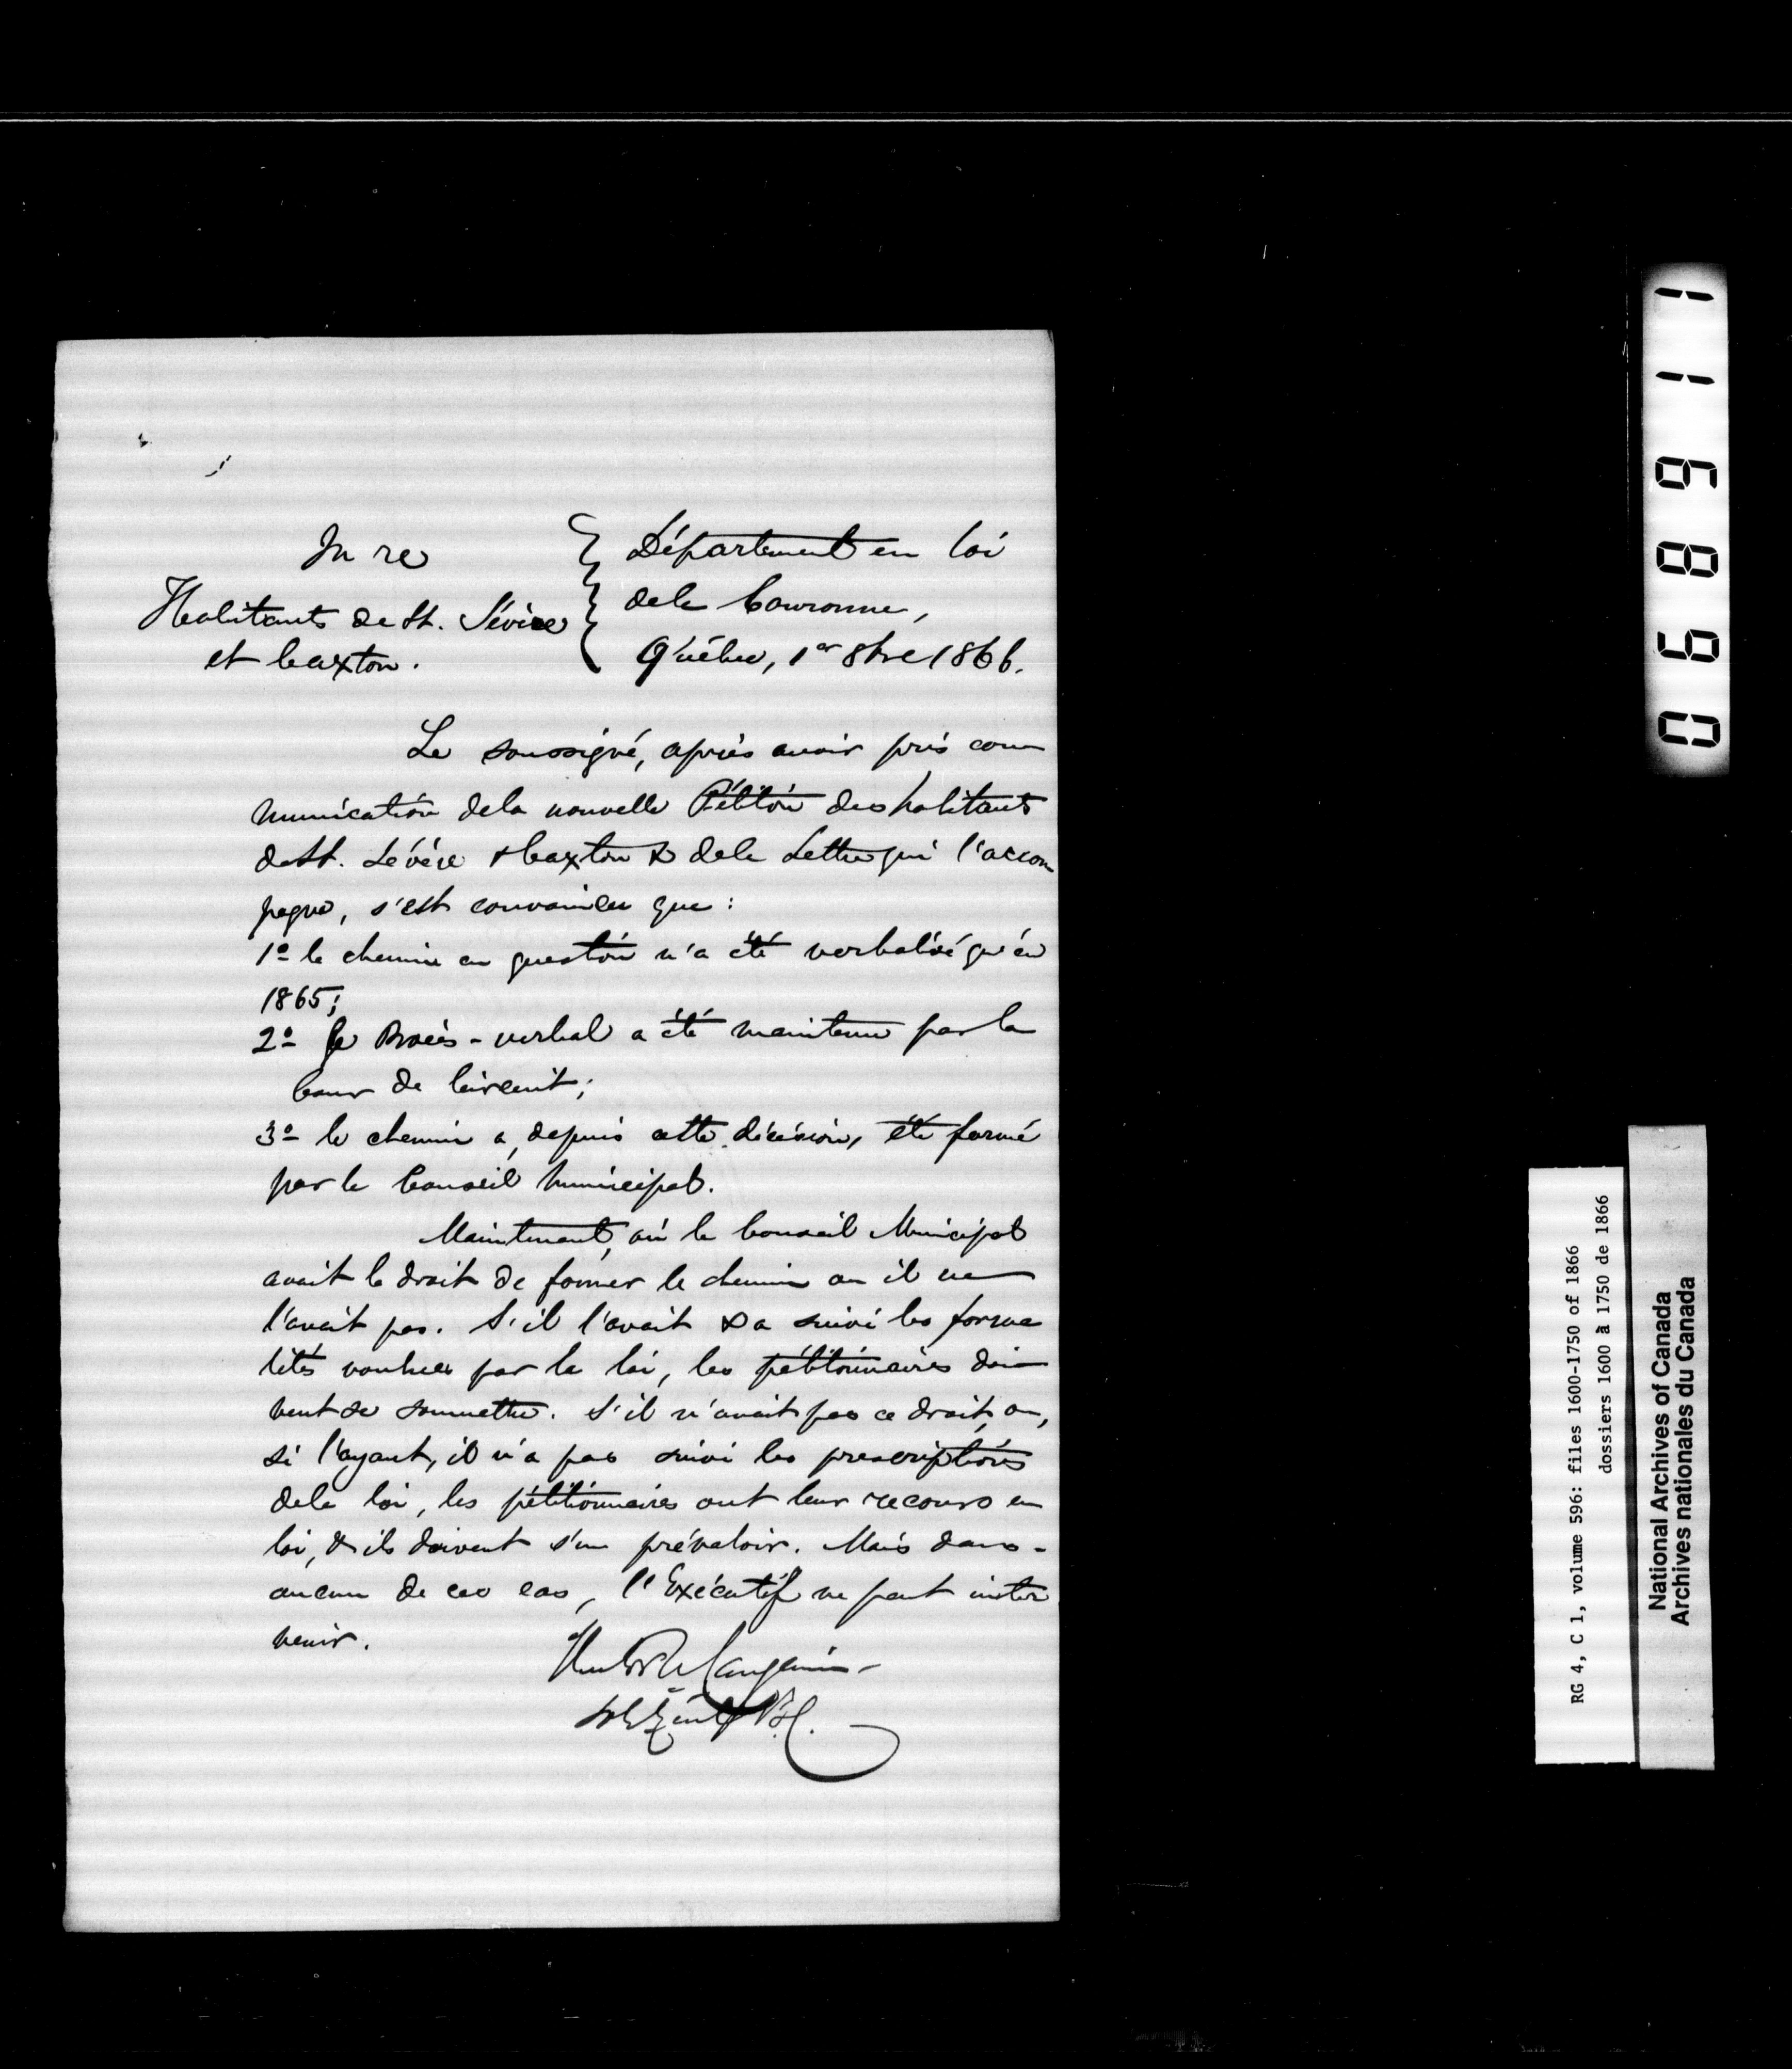 In re
Habitants de St. Sévère
et Caxton.
Département en loi
de la Couronne,
Québec, 1er 8bre 1866.
Le soussigné, après avoir pris com
munication de la nouvelle Pétition des habitants
de St. Sévère & Caxton & de la Lettre qui l'accom
pagne, s'est convaincu que :
1º le chemin en question n'a été verbalisé qu'en
1865;
2º Le Procès-verbal a été maintenu par la
Cour de Circuit;
3º le chemin a, depuis cette décision, été fermé
par le Conseil Municipal.
Maintenant, ou le Conseil Municipal
avait le droit de fermer le chemin ou il ne
l'avait pas. S'il l'avait & a suivi les forma
lités voulues par la loi, les pétitionnaires doi
vent se soumettre. S'il n'avait pas ce droit, ou,
si l'ayant, il n'a pas suivi les prescriptions
de la loi, les pétitionnaires ont leur recours en
loi, & ils doivent s'en prévaloir. Mais dans
aucun de ces cas, l'Exécutif ne peut inter
venir.
Hector L. Langevin
Sol. Génl. B.C.
116890
RG 4, C 1, volume 596: files 1600-1750 of 1866
dossiers 1600 à 1750 de 1866
National Archives of Canada
Archives nationales du Canada